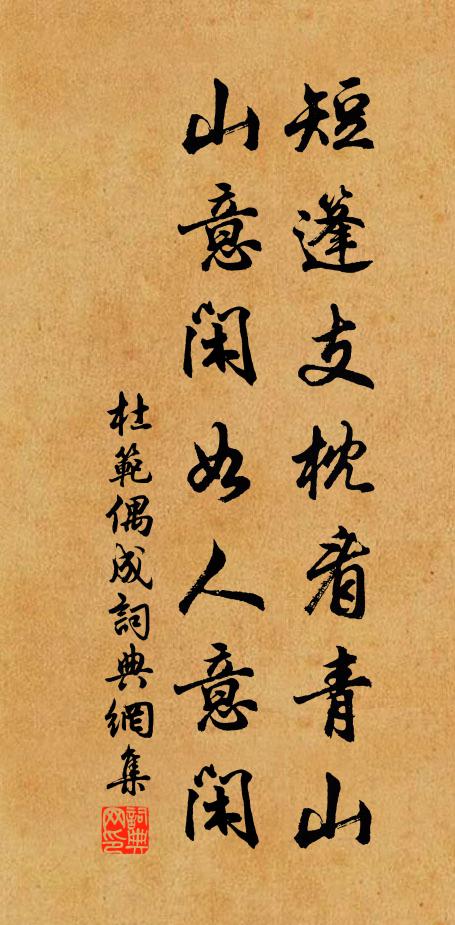 短篷支枕看青山
山意闲如人意闲
杜範偶成詞典網集
詞典网印